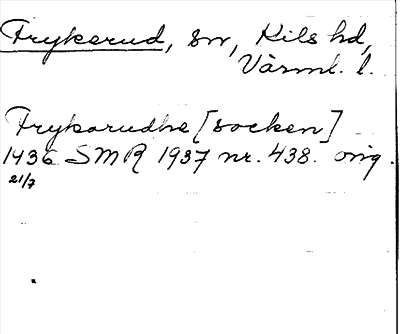 Frykerud, sn, Kils hd,
Värml. l.
Frykarudhe [socken]
1436 SMR 1937 nr. 438. orig.
21/7